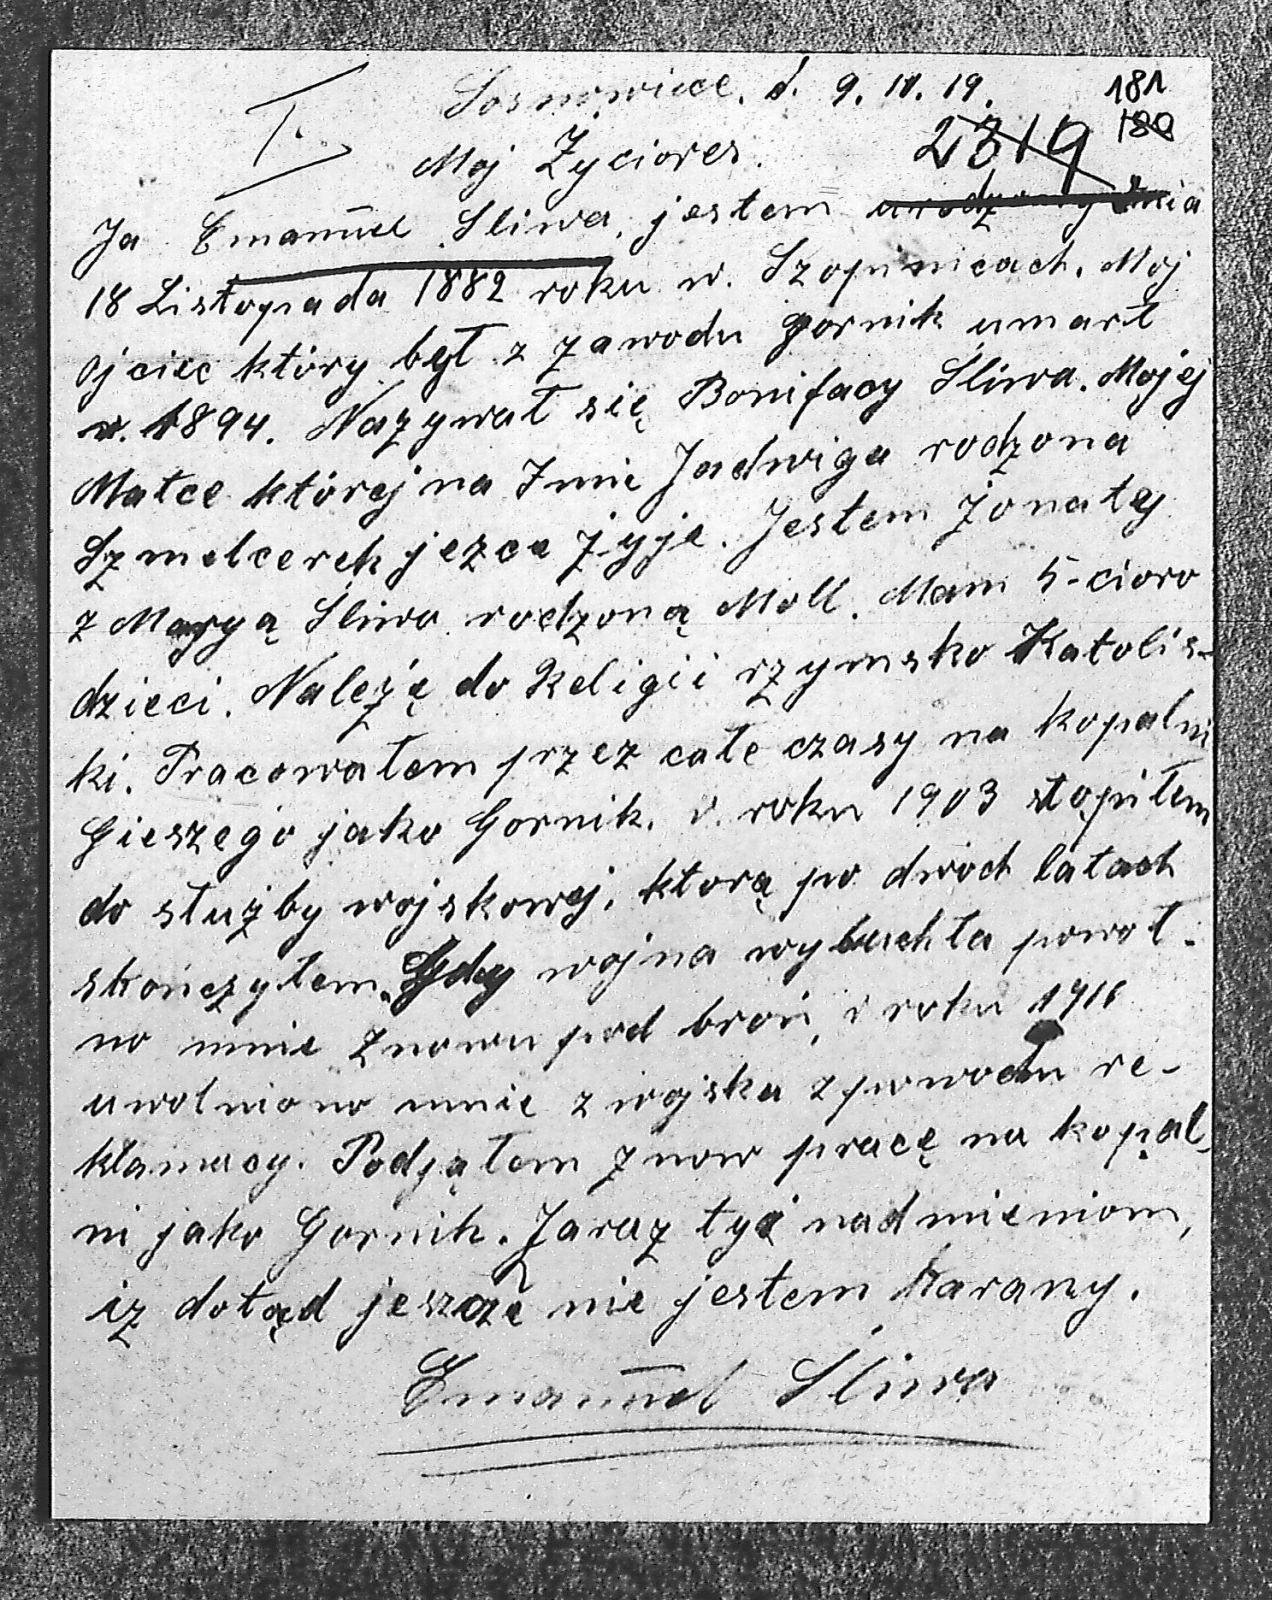 I.
Sosnowice. d. 9. 11. 19.
181
180
2319
Moj Życiores.
Ja Emanūel Sliwa, jestem urodzony dnia
18 Listopada 1882 roku w. Szopinicach. Moj
Ojciec który był z zawodu gornik umarł
w. 1894. Nazywał się Bonifacy Śliwa. Mojej
Matce której na Imie Jadwiga rodzona
Szmelcerek jezce żyje. Jestem żonatej
z Maryą Śliwa rodzoną Moll. Mam 5-cioro
dzieci. Należę do Religii rzymsko Katolis-
ki. Pracowałem przez całe czasy na kopalni
Gieszego jako Gornik. v. roku 1903 stąpiłem
do służby wojskowej, ktorą po dwóch latach
skończyłem. Gdy wojna wybuchła powoł-
no mnie znowu pod broń, v roku 1916
uwolniono mnie z wojska z powodu re-
klamacy. Podjąłem znow pracę na kopal-
ni jako Gornik. Zaraz tyż nadmieniom,
iz dotąd jeszcze nie jestem karany.
Emanūel Śliwa